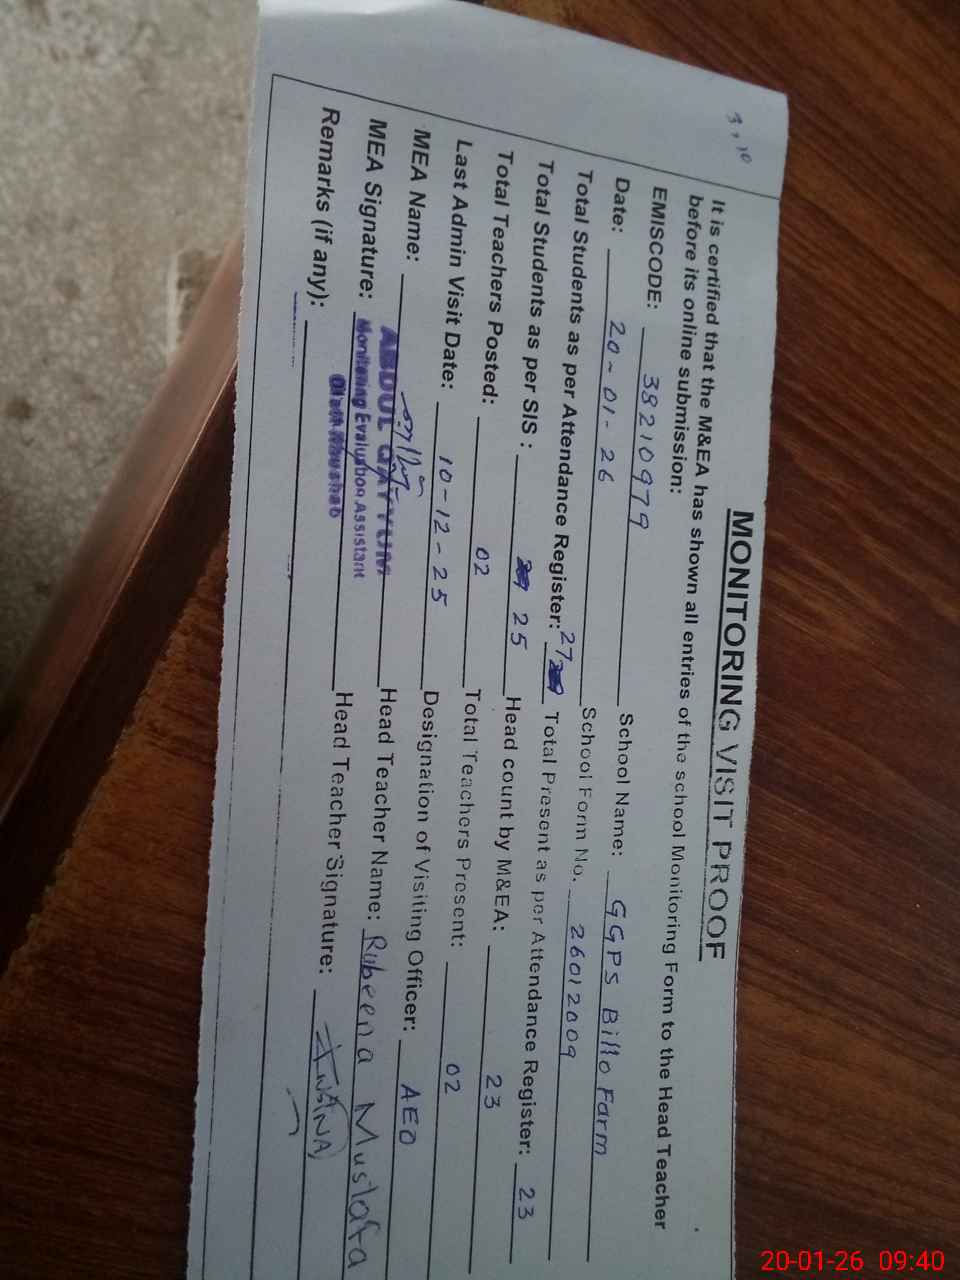 3,10
MONITORING VISIT PROOF
It is certified that the M&EA has shown all entries of the school Monitoring Form to the Head Teacher
before its online submission:
EMISCODE: 38210979 School Name: GGPS Billo Farm
Date: 20-01-26 School Form No. 26012009
Total Students as per Attendance Register: 27 Total Present as per Attendance Register: 23
Total Students as per SIS : 25 Head count by M&EA: 23
Total Teachers Posted: 02 Total Teachers Present: 02
Last Admin Visit Date: 10-12-25 Designation of Visiting Officer: AEO
MEA Name: ABDUL QAYYUM Head Teacher Name: Rubeena Mustafa
MEA Signature: Monitoring Evaluation Assistant Head Teacher Signature:
Remarks (if any):
20-01-26 09:40